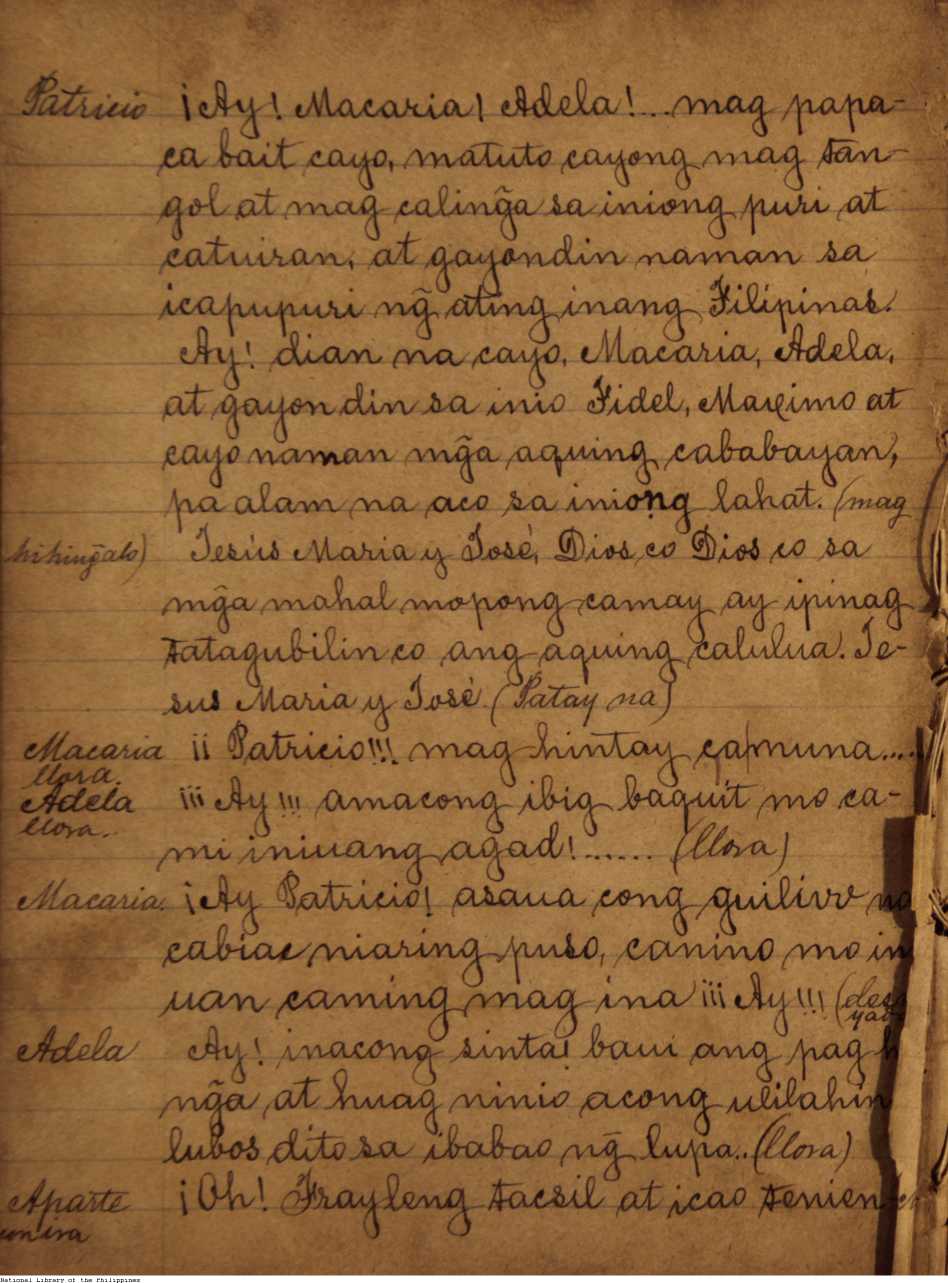 Patricio ¡Ay! Macaria! Adela!... mag papa-
ca bait cayo, matuto cayong mag tan-
gol at mag caliñga sa iniong puri at
catuiran, at gayondin naman sa
icapupuri ng̃ ating inang Filipinas.
Ay! dian na cayo, Macaria, Adela,
at gayon din sa inio Fidel, Maximo at
cayo naman mg̃a aquing cababayan,
pa alam na aco sa iniong lahat. (mag
hihing̃alo) Jesús Maria y José, Dios co Dios co sa
mg̃a mahal mopong camay ay ipinag
tatagubilin co ang aquing calulua. Je-
sus Maria y José (Patay na)
Macaria llora. ¡¡ Patricio!!! mag hintay ca muna....
Adela llora.. ¡¡¡ Ay!!! amacong ibig baquit mo ca-
mi iniuang agad!...... (llora)
Macaria. ¡Ay Patricio! asaua cong guiliw na
cabiac niaring puso, canino mo in
uan caming mag ina ¡¡¡ Ay!!! (des
Adela Ay! inacong sinta! baui ang pag h
ng̃a at huag ninio acong ulilahin
lubos dito sa ibabao ng̃ lupa.. (llora)
Aparte con ira ¡Oh! Frayleng tacsil at icao tenien
National Library of the Philippines